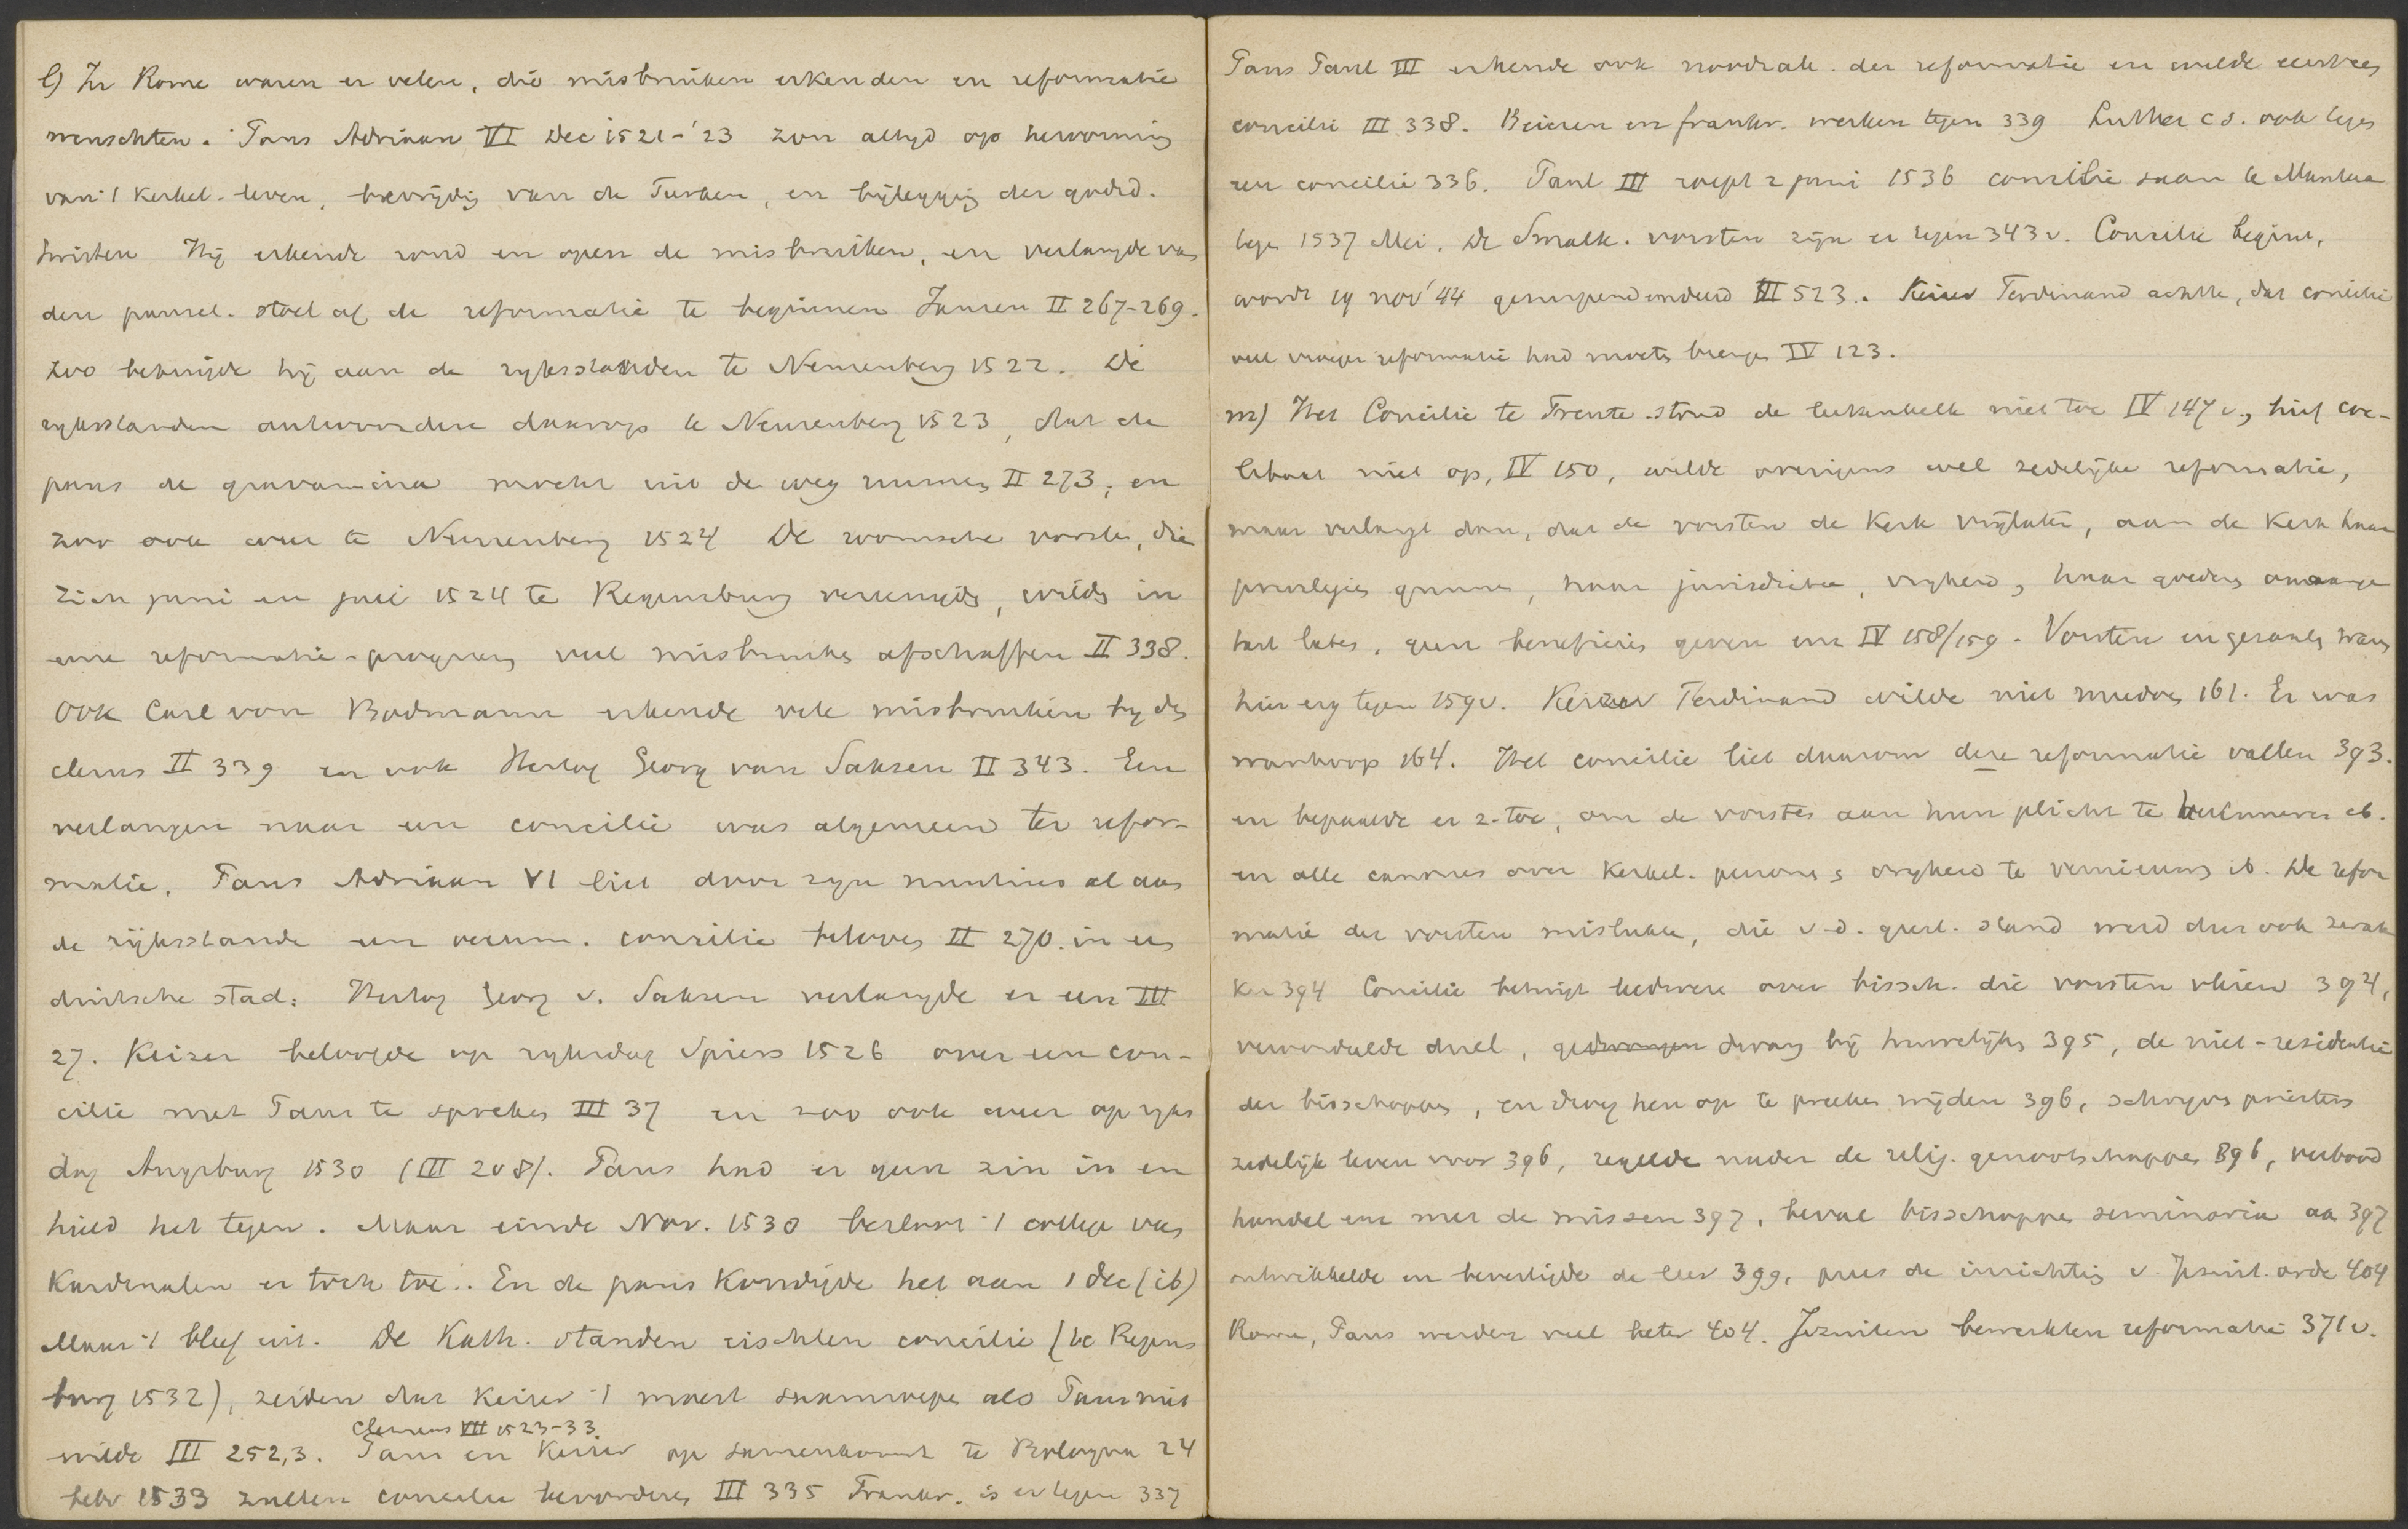 l) In Rome waren er velen, die misbruiken erkenden en reformatie
wenschten. Paus Adriaan VI Dec 1521-'23 zon altijd op hervorming
van 't kerkel. leven, bevrijdig van de Turken, en bijleggig der godsd.
twisten Hij erkende rond en open de misbruiken, en verlangde van
den pausel. stoel af de reformatie te beginnen Jansen II 267-269.
Zoo betuigde hij aan de rijksstanden te Neurenberg 1522. De
rijksstanden antwoordden daarop te Neurenberg 1523, dat de
paus de gravamina mocht uit de weg ruimen II 273, en
zoo ook weer te Neurenberg 1524 De roomsche vorsten, die
zich juni en juli 1524 te Regensburg vereenigde, wilde in
eene reformatie-program veel misbruiken afschaffen II 338.
Ook Carl von Bodmann erkende vele misbruiken bij den
clerus II 339 en ook Hertog Georg van Saksen II 343. Een
verlangen naar een concilie was algemeen ter refor-
matie. Paus Adriaan VI liet door zijn nuntius al aan
de rijksstande een oecum. concilie beloven II 270. in een
duitsche stad. Hertog Georg v. Saksen verlangde er een III
27. Keizer beloofde op rijksdag Spiers 1526 over een con-
cilie met Paus te spreken III 37 en zoo ook weer op rijks
dag Augsburg 1530 (III 208). Paus had er geen zin in en
hield het tegen. Maar einde Nov. 1530 besloot 't college van
Kardinalen er toch toe. En de paus kondigde het aan 1 dec (ib)
Maar 't bleef uit. De Kath. standen eischten concilie (te Regens
burg 1532), zeiden dat Keizer 't moest saamroepen als Paus niet
Clemens VII 1523-33
wilde III 252,3. Paus en Keizer op samenkomst te Bologna 24
febr 1533 zullen concilie bevorderen III 335 Frankr. is er tegen 337
Paus Paul III erkende ook noodzak. der reformatie en wilde
concilie III 338. Beieren en frankr. werken tegen 339 Luther c.s. ook tegen
een concilie 336. Paul III roept 2 juni 1536 concilie saam te Mantua
tegen 1537 Mei. De Smalk. vorsten zijn er tegen 343 v. Concilie begint,
wordt 19 nov '44 gesuspendeerd III 523. Keizer Ferdinand achtte, dat concilie
veel vroeger reformatie had moeten brengen IV 123.
m) Het Concilie te Trente stond de leekenkelk niet toe IV 147 v., hief coe-
libaat niet op, IV 150, wilde overigens wel zedelijke reformatie,
maar verlangt dan, dat de vorsten de Kerk vrijlaten, aan de Kerk haar
privilegies gunnen, haar jurisdictie, vrijheid, haar goederen onaange
tast laten, geen beneficies geven enz IV 158/159. Vorsten en gezanten waren
hier erg tegen 159 v. Keizer Ferdinand wilde niet 161. Er was
wanhoop 164. Het concilie liet daarom deze reformatie vallen 393.
en bepaalde er z. toe, om de vorsten aan hun plicht te herinneren ib.
en alle canones over Kerkel. persone s vrijheid te vernieuwen ib. De refor
matie der vorsten mislukte, die v. d. geest. stand werd dus ook zwak
ker 394 Concilie betuigt leedwezen over bissch. die vorsten vleien 394,
veroordeelde duel, gedwongen dwang bij huwelijken 395, de niet-residentie
der bisschoppen, en droeg hen op te preeken wijden 396, schreven priesters
zedelijk leven voor 396, regelde nader de relig. genootschappen 396, verbood
handel enz met de missen 397, beval bisschoppen seminaria aan 397
ontwikkelde en bevestigde de leer 399, prees de inrichting v. Jezuit. orde 404
Rome, Paus werden veel beter 404. Jezuiten bewerkten reformatie 371 v.